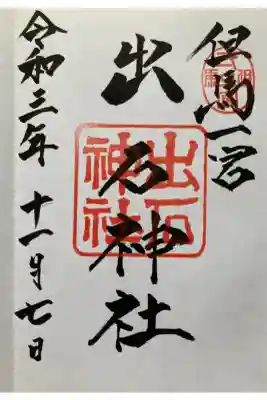 但馬一宮
出石神社
出石神社
令和三年 十一月七日